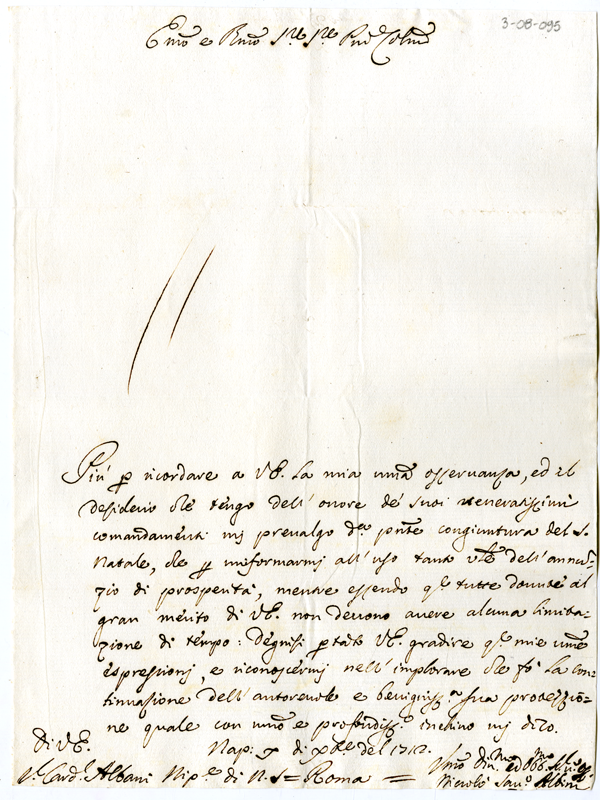 3-08-095
Emo e Rmo Sre Sre Pne Colmo
Più p ricordare a VE. la mia umã osservanza, ed il
desiderio che tengo dell'onore de' suoi veneratissimi
comandamenti mi prevalgo della pnte congiuntura del S.
Natale, che p uniformarmi all'uso tanto vle dell'annun-
zio di prosperità, mentre essendo qte tutte dovute al
gran merito di VE. non devono avere alcuna limita-
zione di tempo: Degnisi ptato VE. gradire qte mie ume
espressioni, e riconoscermi nell'implorare che fò la con-
tinuazione dell'autorevole e benignissa sua protezzio-
ne quale con umo e profondissº inchino mi dico.
Di VE. Nap: di Xbre del 1712.
Sr Cardl Albani Nipe di N. S= Roma = Umo Divmo ed Obbmo
Nicolò Albini